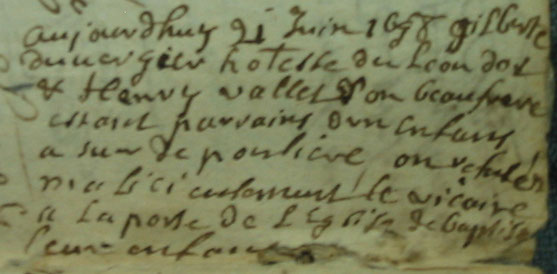 aujourdhuy 21 Juin 1658 gilberte
duvergier hotesse du Leon dor
& Henry vallet son beaufrere
estant parrains dun enfans
a sur de ont
malicieusement le vicaire
a la porte de l'Eglise de baptise
leur enfan